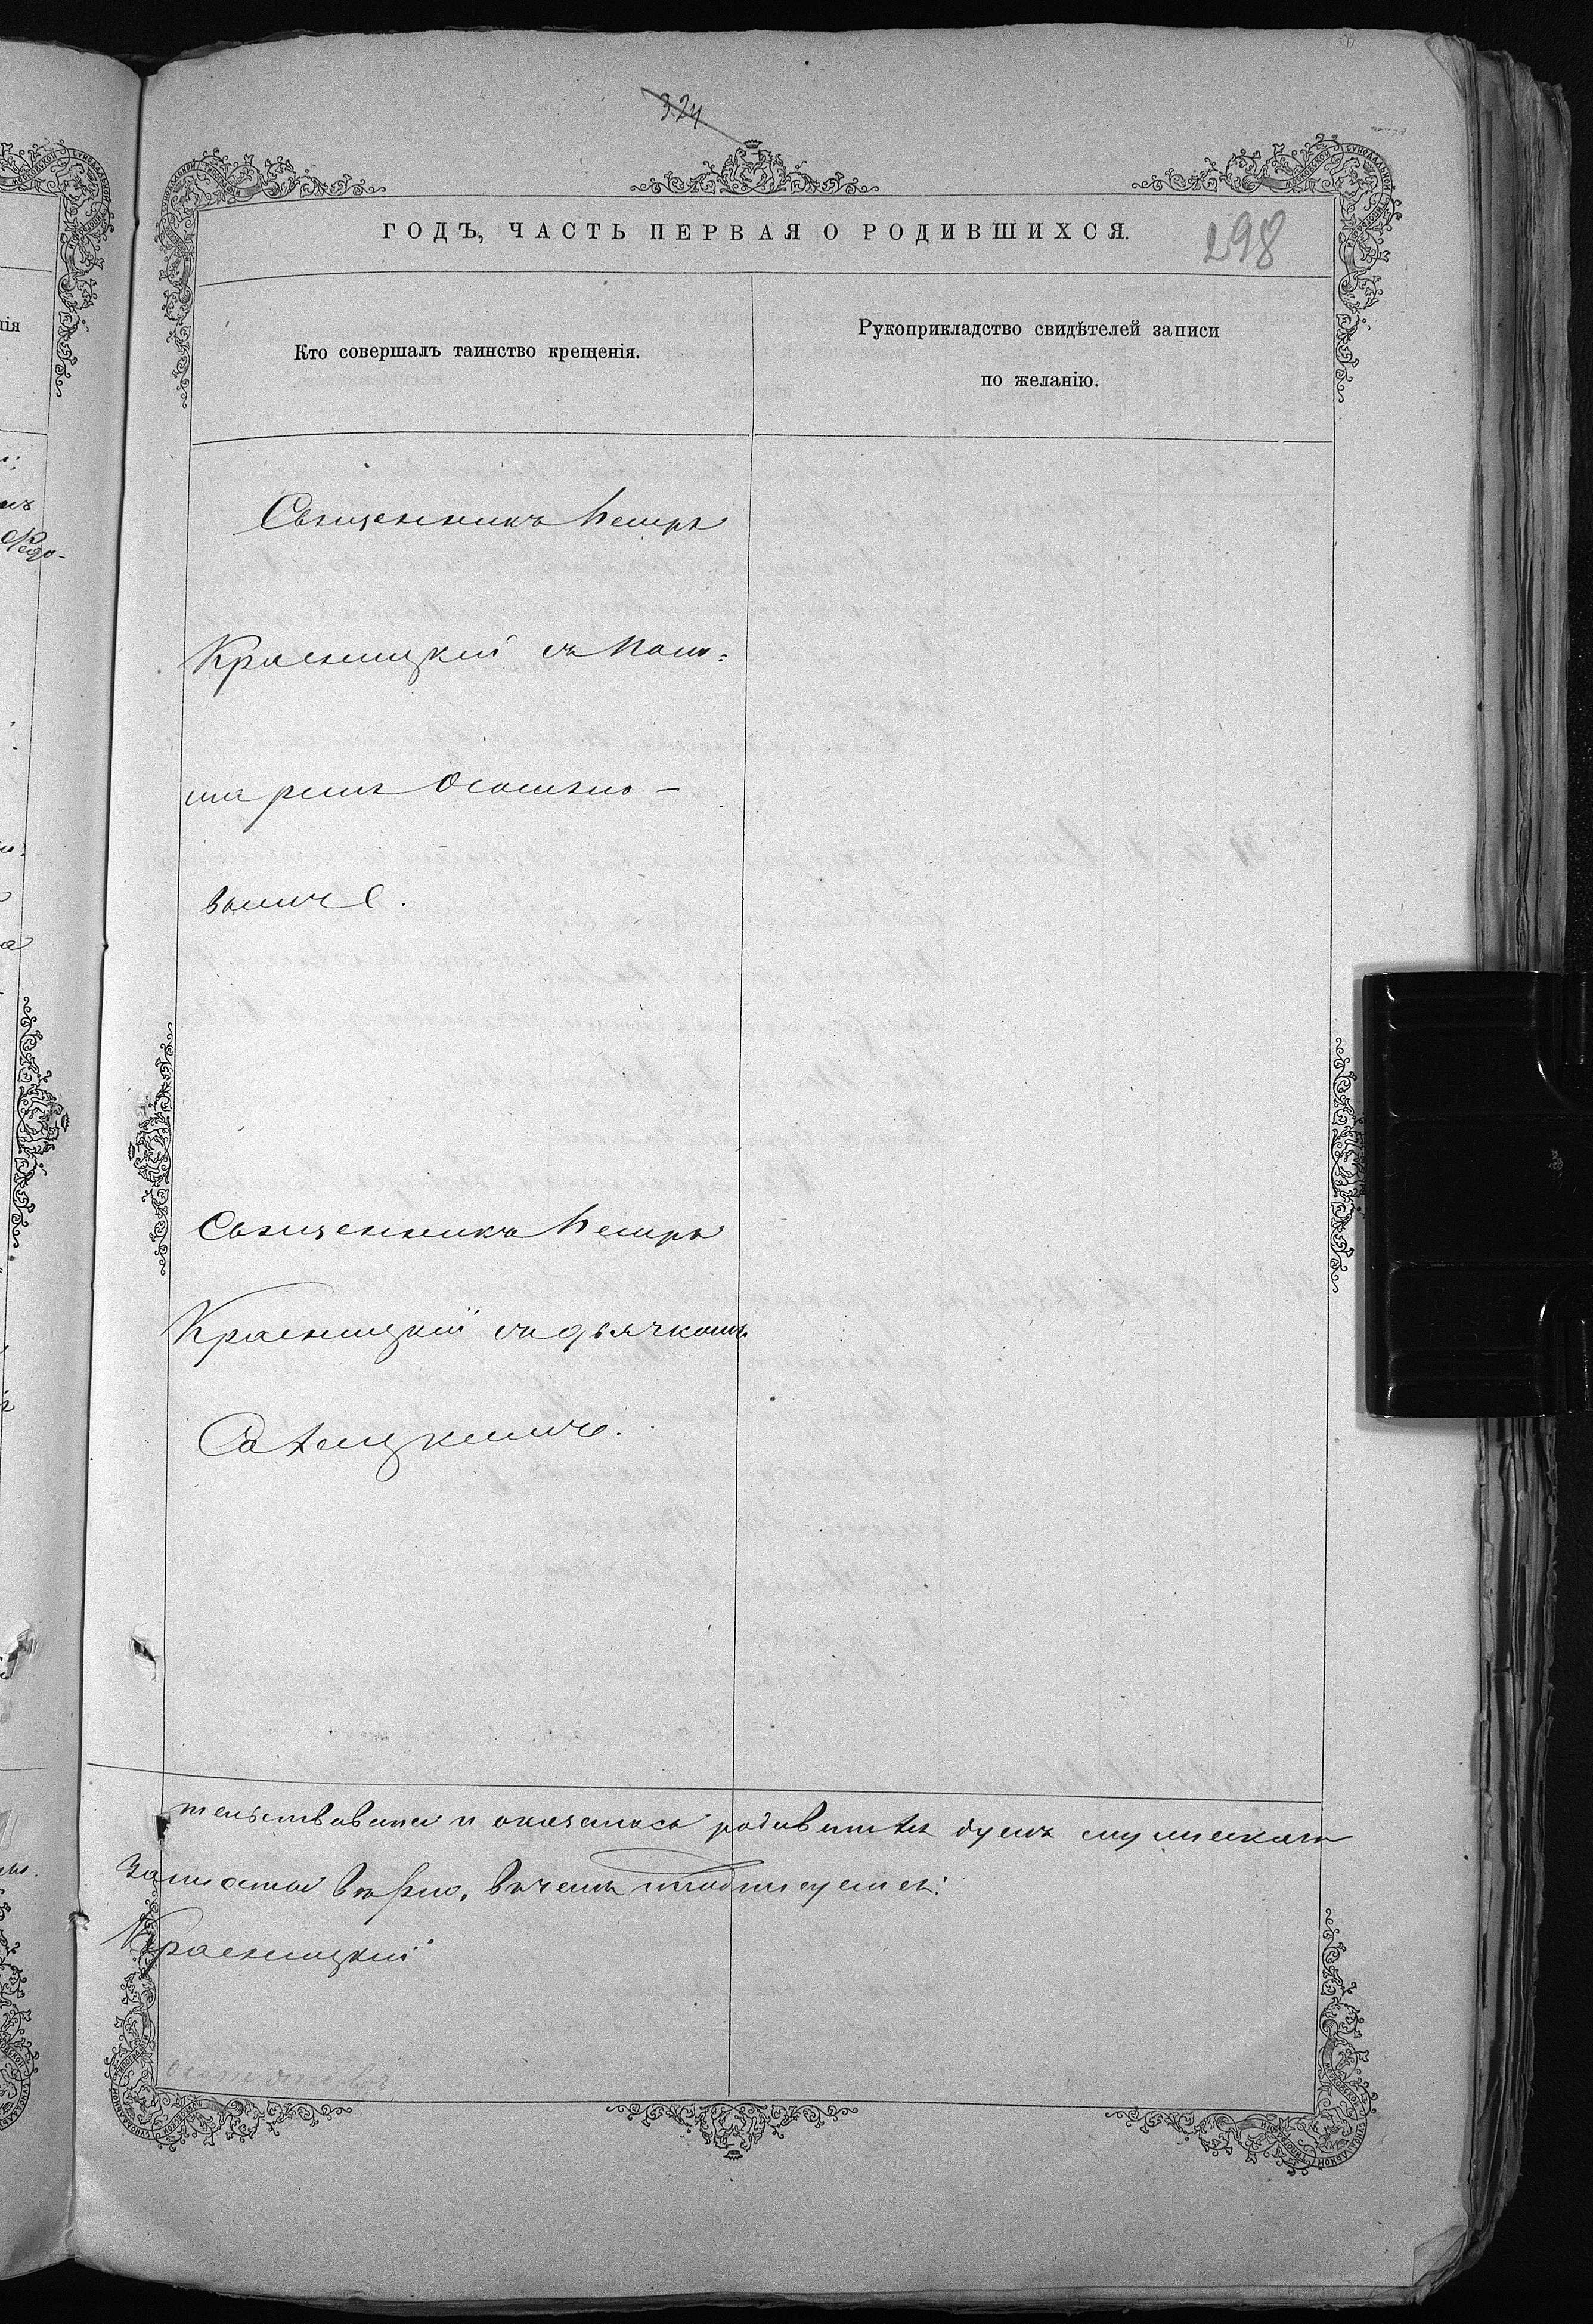 324
ГОДЪ, ЧАСТЬ ПЕРВАЯ О РОДИВШИХСЯ.
298
Кто совершалъ таинство крещенія.
Рукоприкладство свидѣтелей записи
по желанію.
Священникъ Петръ
Красницкій съ Поно-
маремъ
Священникъ Петръ
Красницкій съ дьячкомъ
тельствована и оказалось родившихся душъ мужескаго
записью вѣрно, въ чемъ и подписуемся:
Красницкій